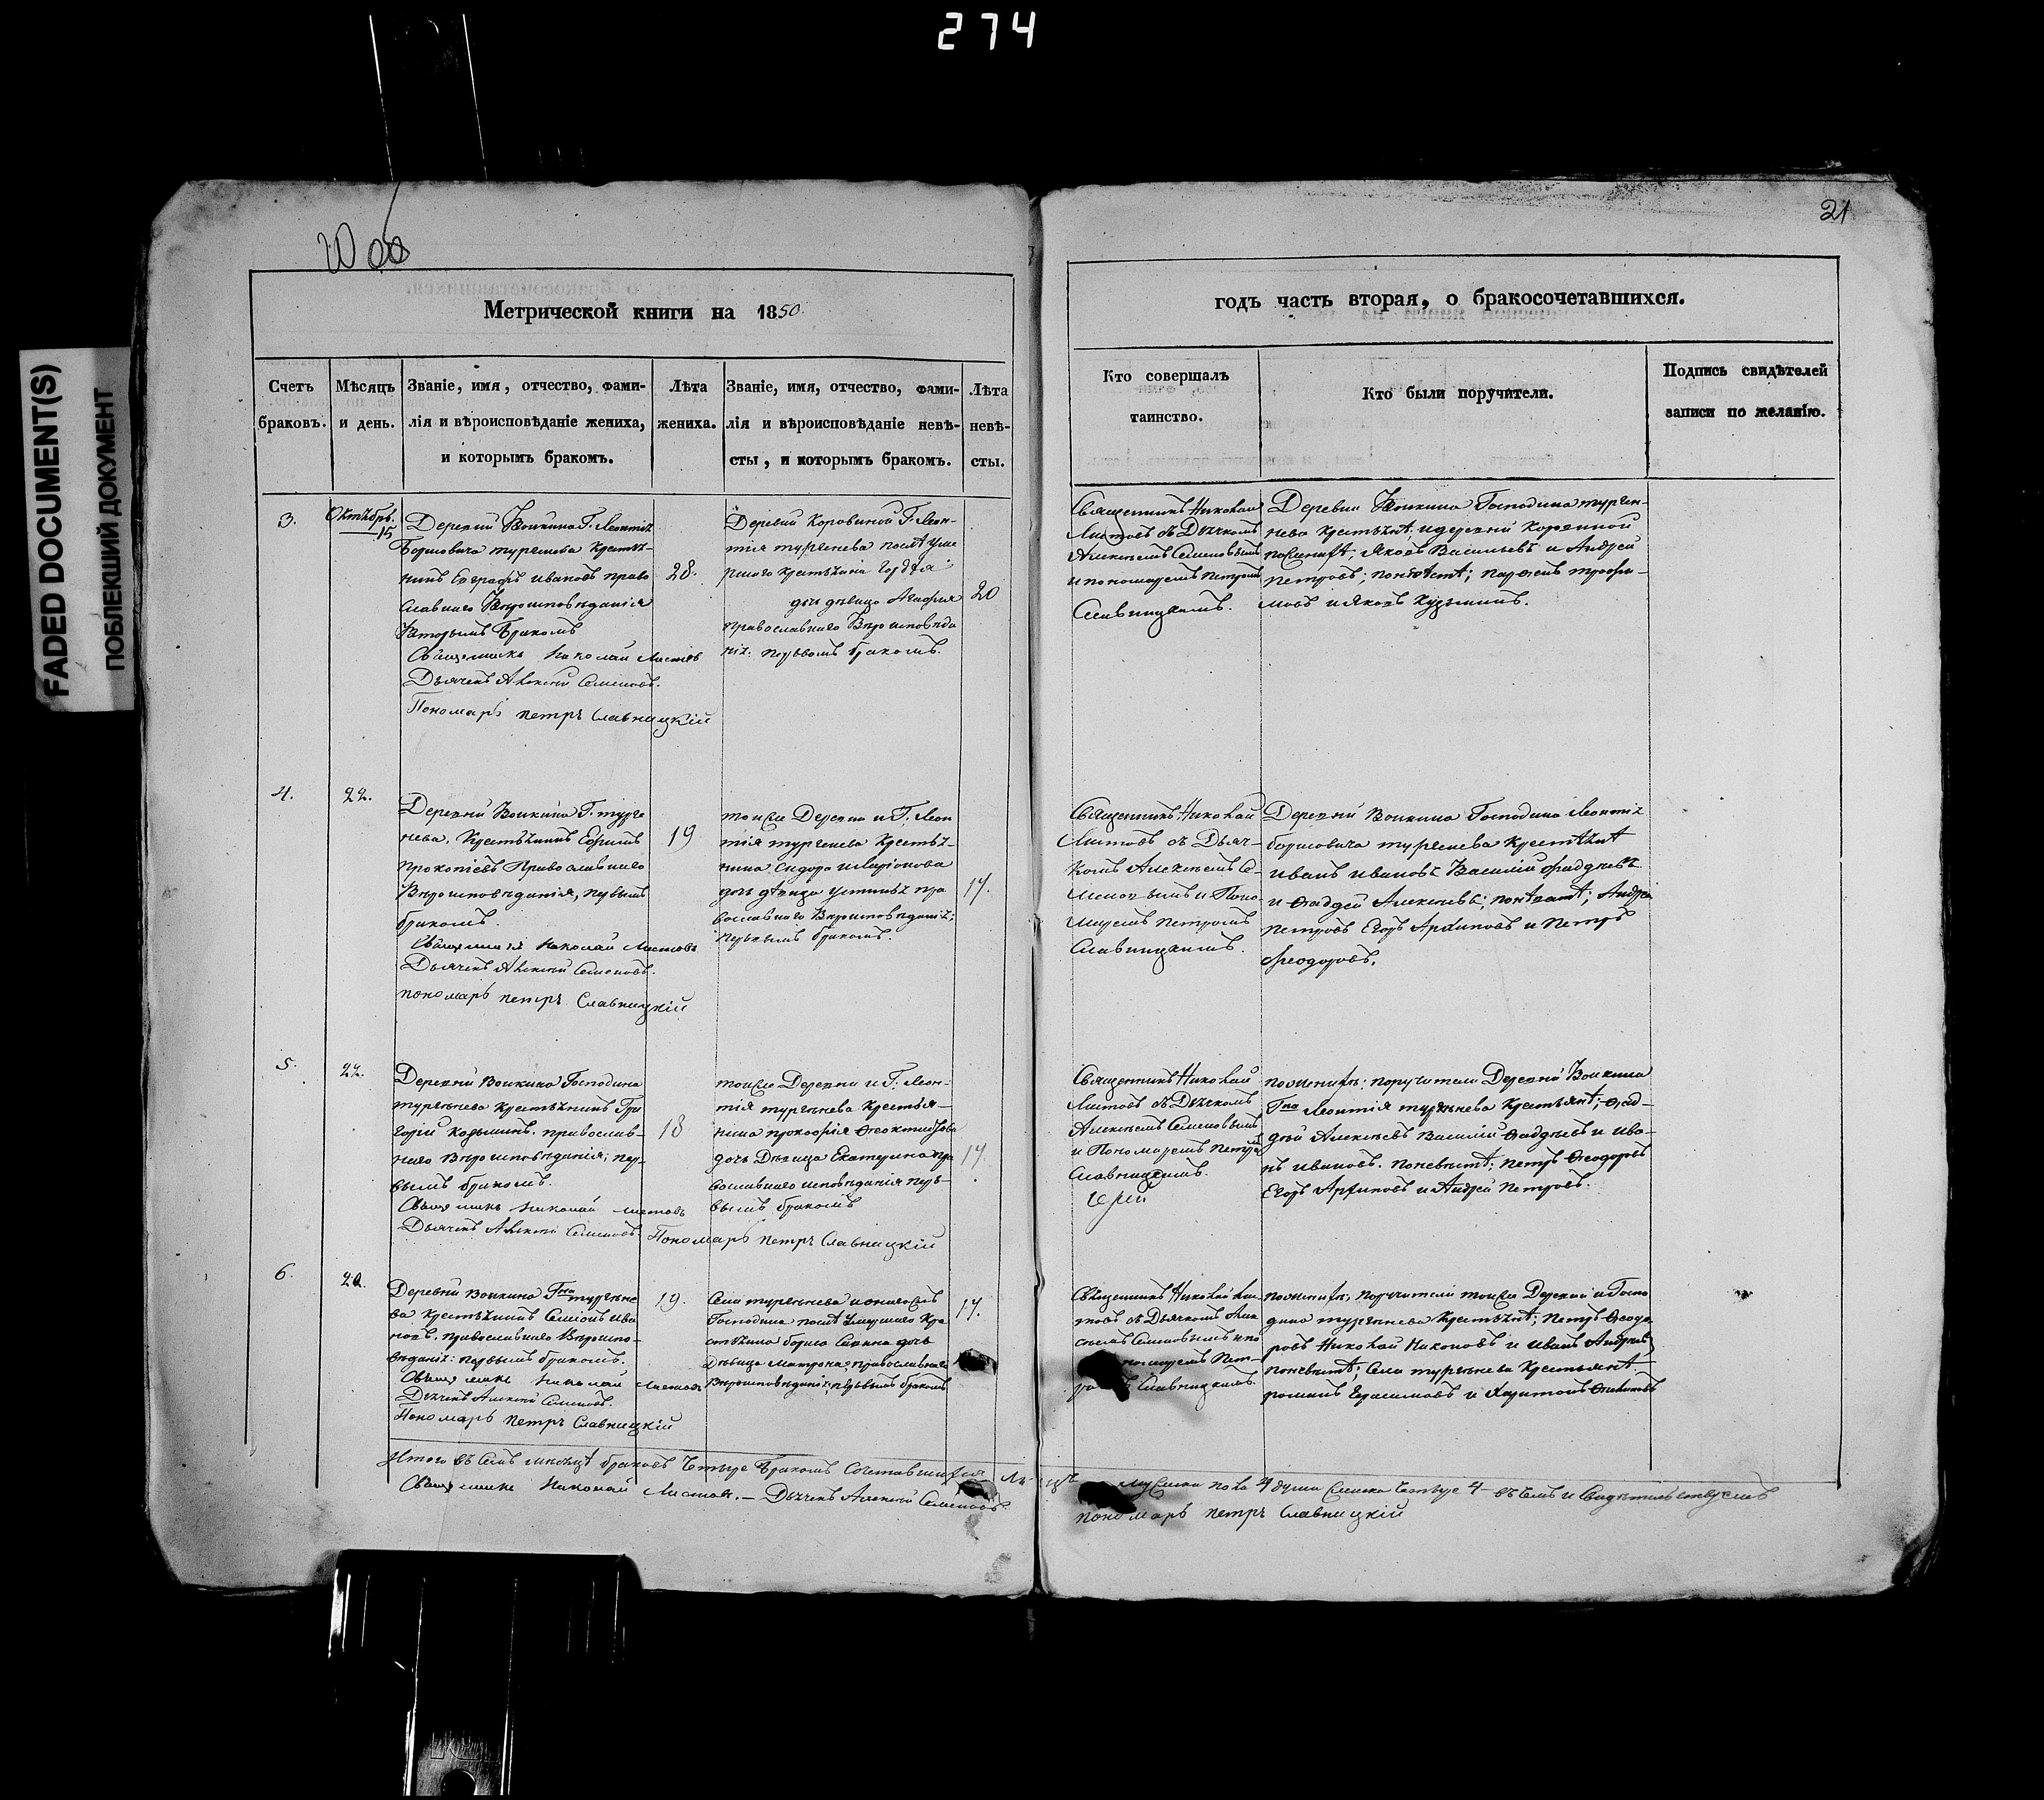 274
FADED DOCUMENT(S)
ПОБЛЕКШИЙ ДОКУМЕНТ
21
Метрической книги на 1850.
Счетъ браковъ.
Мѣсяцъ и день.
Званіе, имя, отчество, фами-
лія и вѣроисповѣданіе жениха,
и которымъ бракомъ.
Лѣта жениха.
Званіе, имя, отчество, фами-
лія и вѣроисповѣданіе невѣ-
сты, и которымъ бракомъ.
Лѣта невѣ-
сты.
3.
Октября 15
Деревни Воикина Г. Леонтія
Борисовича тургенева крестья-
нинъ Евграфъ ивановъ право
славнаго Вѣроисповѣданія
Вторымъ Бракомъ
Священникъ Николай Листовъ
Дьячекъ Алексѣй Семеновъ.
Пономарь петръ Славницкій
28.
Деревни Коровиной Г. Леон-
тія тургенева послѣ уме
ршаго крестьянина Гордѣя
дочь дѣвица Агафія
православнаго Вѣроисповѣда
нія. первымъ бракомъ.
20
4.
22.
Деревни Воикина Г. турге
нева. Крестьянинъ Ефимъ
прокопіевъ Православнаго
Вѣроисповѣданія, первымъ
бракомъ.
Священникъ Николай Листовъ
Дьячекъ Алексѣй Семеновъ.
пономарь петръ Славницкій
19
тоисже Деревни и Г. Леон
тія тургенева Крестья-
нина Сидора иларіонова
дочь дѣвица устинья пра
вославнаго Вѣроисповѣданія;
первымъ бракомъ.
17.
5.
22.
Деревни Воикина Господина
тургенева крестьянинъ Гри
горій козьминъ. православ-
наго Вѣроисповѣданія; пер-
вымъ бракомъ.
Священникъ Николай Листовъ
Дьячекъ Алексѣй Семеновъ. Пономарь петръ Славницкій
18
тоисже Деревни и Г. Леон-
тія тургенева крестья-
нина прокофія Ѳеоктистова
дочь Дѣвица Екатерина пра
вославнаго исповѣданія пер-
вымъ бракомъ
17.
6.
Деревни Воикина Гна тургене
ва крестьянинъ Семіонъ ива
новъ. православнаго Вѣроиспо-
вѣданія: первымъ бракомъ.
Священникъ Николай Листовъ
Дьячекъ Алексѣй Семеновъ.
Пономарь Петръ Славницкій
19.
Села тургенева
Господина послѣ умершаго Кре
стьянина бориса дочь
Дѣвица матрона православнаго
Вѣроисповѣданія; первымъ бракомъ
17.
Итого въ Семъ мѣсяцѣ браковъ Четыре Бракомъ Сочетавшихся
Священникъ Николай Листовъ. — Дьячекъ Алексѣй Семеновъ
годъ часть вторая, о бракосочетавшихся.
Кто совершалъ таинство.
Кто были поручители.
Подпись свидѣтелей
записи по желанію.
Священникъ Николай
Листовъ съ Дьячкомъ
Алексѣемъ Семеновымъ
и пономаремъ петромъ
Славницкимъ.
Деревни Воикина Господина турген-
нева крестьянѣ; и деревни Коренной
пожениху; Яковъ Васильевъ и Андрей
петровъ; поневѣстѣ; парѳенъ трофи-
мовъ и Яковъ Кузьминъ.
Священникъ Николай
Листовъ съ Дьяч-
комъ Алексѣемъ Се-
меновымъ и Поно-
маремъ петромъ
Славницкимъ.
Деревни Воикина Господина Леонтія
борисовича тургенева Крестьянѣ
иванъ ивановъ Василій фаддѣевъ
и Ѳаддей Алексѣевъ; поневѣстѣ; Андрей
петровъ Егоръ Архиповъ и Петръ
Феодоровъ.
Священникъ Николай
Листовъ съ Дьячкомъ
Алексѣемъ Семеновымъ
и Пономаремъ Петромъ
Славницкимъ.
пожениху: поручители Деревни Воикина
Гна Леонтія тургенева Крестьянѣ; Ѳад-
дѣй Алексѣевъ Василій Ѳаддѣевъ и ива-
нъ ивановъ. поневѣстѣ; петръ Ѳеодоровъ
Егоръ Архиповъ и Андрей Петровъ.
Священникъ Николай Лис-
товъ съ Дьячкомъ Алек
сѣемъ Семеновымъ и по
номаремъ Пет-
ромъ Славницкимъ.
пожениху; поручители тоисже Деревни и Госпо
дина тургенева Крестьянѣ; Петръ Ѳеодо
ровъ Николай Никоновъ и иванъ Андреевъ
поневѣстѣ; Села тургенева Крестьянѣ
романъ Герасимовъ и Харитонъ
4 души Четыре 4 въ чемъ и Свидѣтельствуемъ
пономарь петръ Славницкій